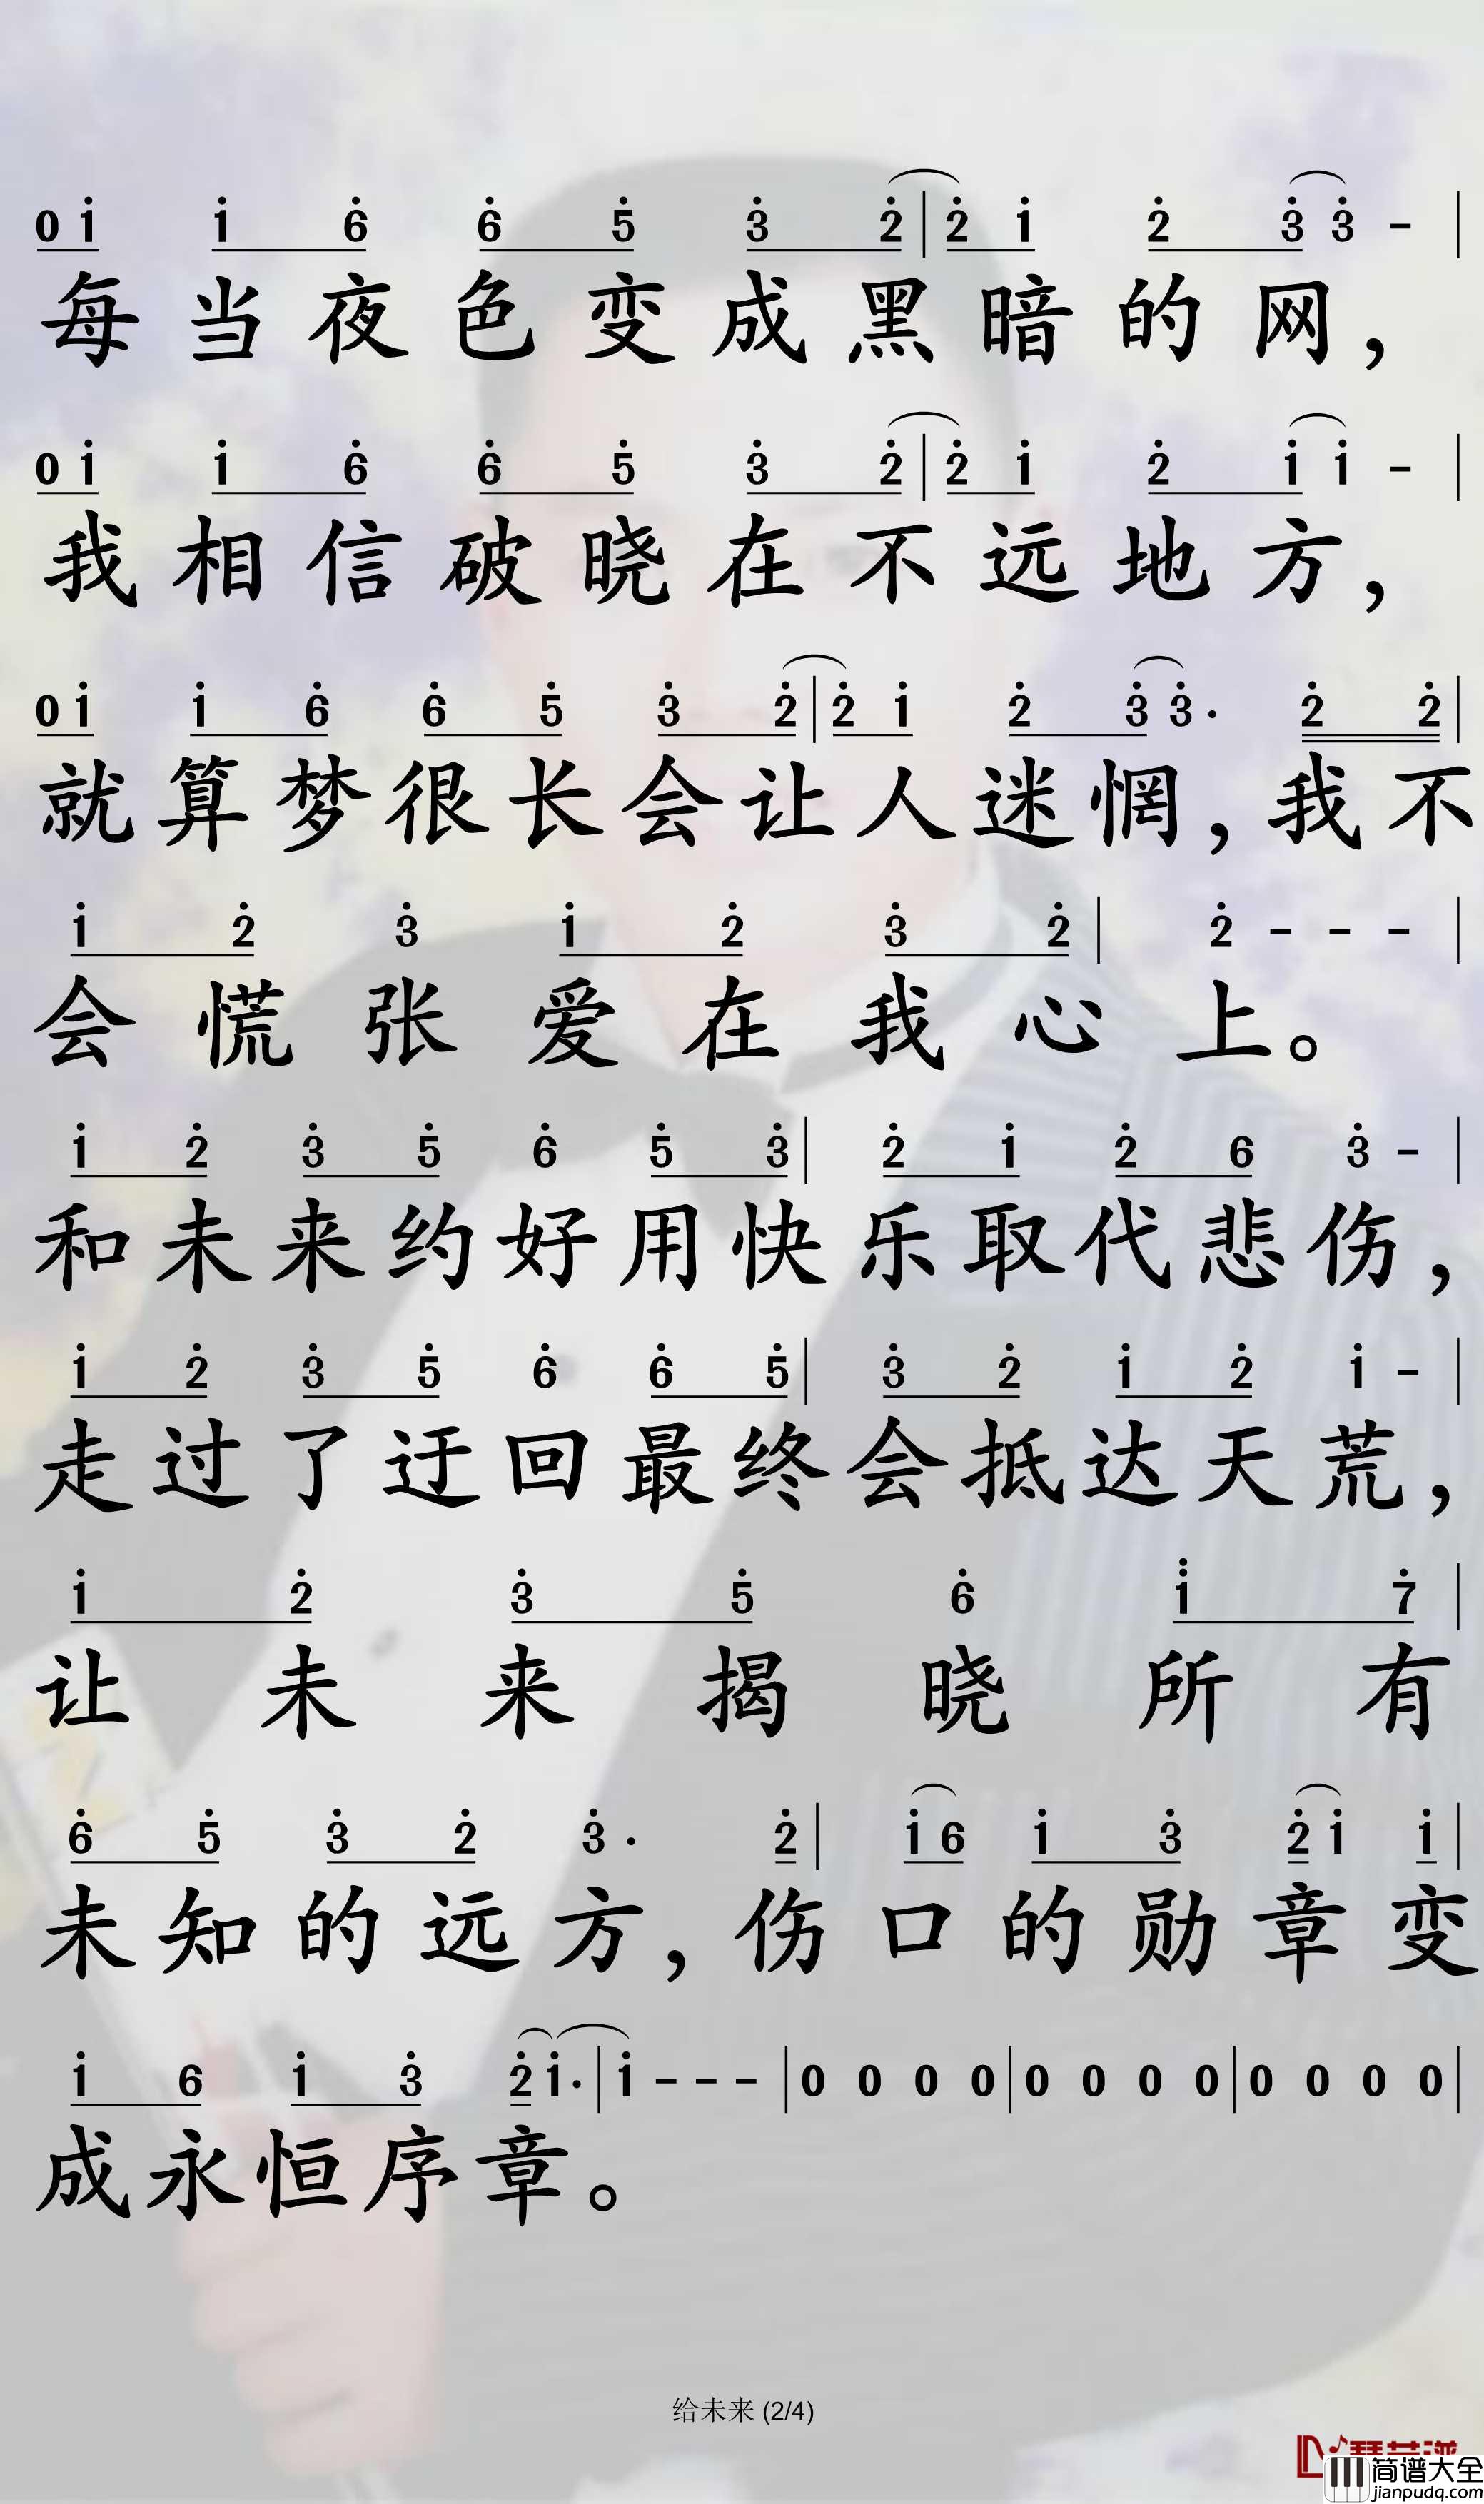 0 1̇ 1̇ 6̇ 6̇ 5̇ 3̇ 2̇ | 2̇ 1̇ 2̇ 3̇ 3̇ - |
每当夜色变成黑暗的网，
0 1̇ 1̇ 6̇ 6̇ 5̇ 3̇ 2̇ | 2̇ 1̇ 2̇ 1̇ 1̇ - |
我相信破晓在不远地方，
0 1̇ 1̇ 6̇ 6̇ 5̇ 3̇ 2̇ | 2̇ 1̇ 2̇ 3̇ 3̇ · 2̇ 2̇ |
就算梦很长会让人迷惘，我不
1̇ 2̇ 3̇ 1̇ 2̇ 3̇ 2̇ | 2̇ - - - |
会慌张爱在我心上。
1̇ 2̇ 3̇ 5̇ 6̇ 5̇ 3̇ | 2̇ 1̇ 2̇ 6 3̇ - |
和未来约好用快乐取代悲伤，
1̇ 2̇ 3̇ 5̇ 6̇ 6̇ 5̇ | 3̇ 2̇ 1̇ 2̇ 1̇ - |
走过了迂回最终会抵达天荒，
1̇ 2̇ 3̇ 5̇ 6̇ 1̈ 7̇ |
让未来揭晓所有
6̇ 5̇ 3̇ 2̇ 3̇ · 2̇ | 1̇ 6 1̇ 3̇ 2̇ 1̇ 1̇ |
未知的远方，伤口的勋章变
1̇ 6 1̇ 3̇ 2̇ 1̇ · | 1̇ - - - | 0 0 0 0 | 0 0 0 0 | 0 0 0 0 |
成永恒序章。
给未来 (2/4)
简谱大全
jianpudq.com